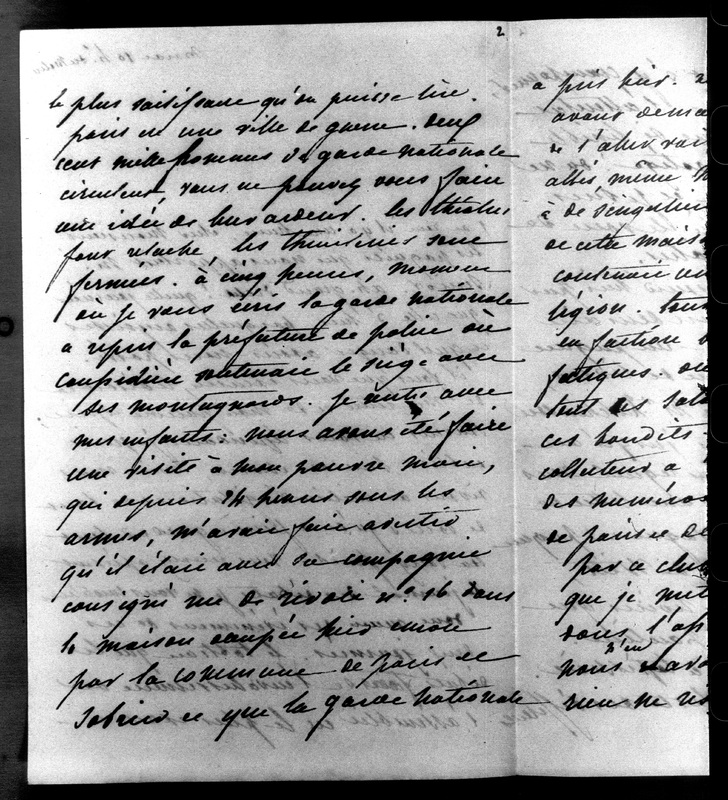 2
le plus saisissant qu'on puisse lire.
paris est une ville de guerre. deux
cent mille hommes de garde nationale
circulent, vous ne pouvez vous faire
une idée de leur ardeur. les théatres
font relache, les thuileries sont
fermées. à cinq heures, moment
où je vous écris la garde nationale
a repris la préfecture de police où
Caussidière soutenait le siége avec
ses montagnards. je rentre avec
mes enfants: nous avons été faire
une visite à mon pauvre mari,
qui depuis 24 heures sous les
armes, m'avait fait avertir
qu'il était avec sa compagnie
consigné rue de rivoli n°. 16 dans
la maison occupée hier encore
par la commune de paris et
Sobrier et que la garde nationale
a pris hier.
avons
de l'aller voir
même
à de singulier
de cette maison
contenait un
légion. tous
en faction
fatigués.
tous
ces bandits
collecteur a
des numéros
de paris et de
par a
que je
dans l'
nous n'en
rien ne